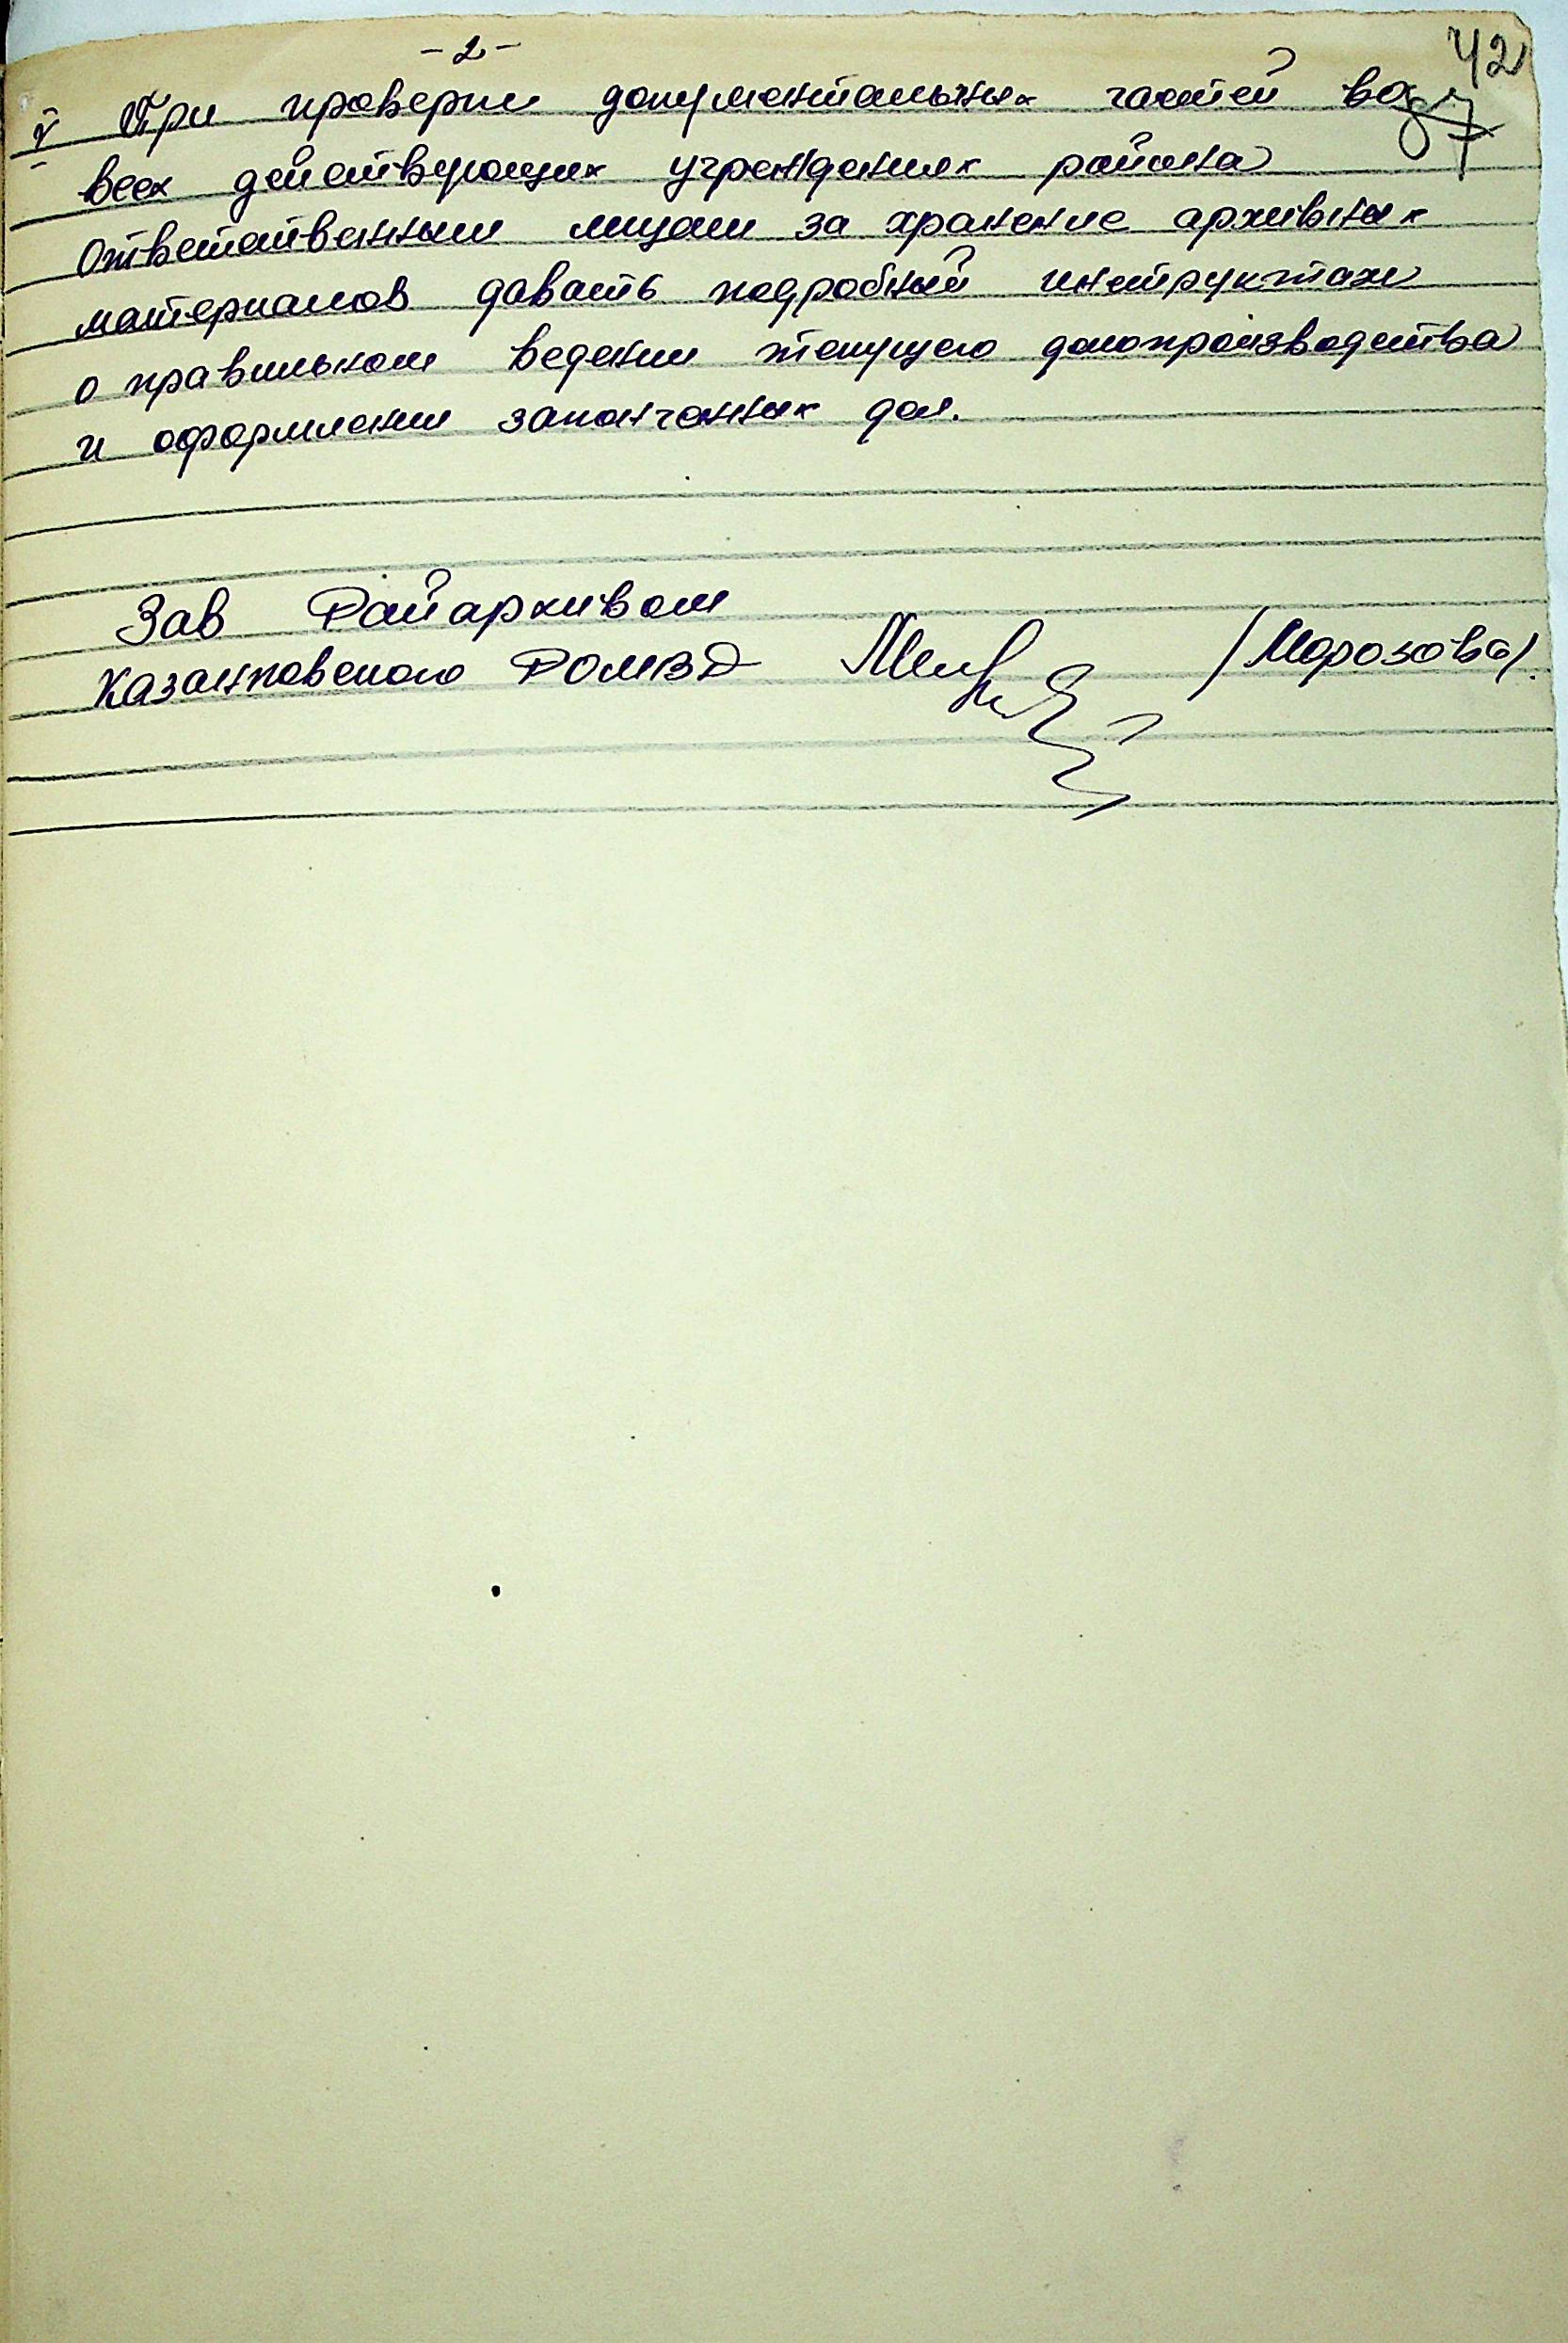 - 2 -
42
При проверки документальных частей во
всех действующих учреждениях района
Ответственным лицам за хранение архивных
материалов давать подробный инструктаж
о правильном ведении текущего делопроизводства
и оформлении законченных дел.
Зав Райархивом
Казанковского РОМВД /Морозова/.